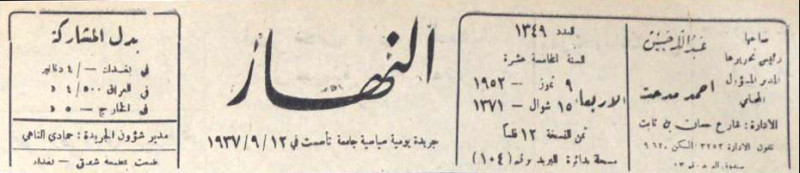 صاحبها
عبدالله حبيش
رئيس تحريرها
المدير المسؤول
احمد مدحت
المحامي
الادارة : شارع حسان بن ثابت
تلفون الادارة ٣٢٥٢ السكن ٩٦٢٠
العدد ١٣٤٩
السنة الخامسة عشرة
الاربعاء ٩ تموز – ١٩٥٢
١٥ شوال – ١٣٧١
ثمن النسخة ١٢ فلساً
مسجلة بدائرة البريد برقم (١٠٤)
النهار
جريدة يومية سياسية جامعة تأسست في ١٢ / ٩ / ١٩٣٧
بدل المشاركة
في بغداد –/٤ دنانير
في العراق ٥٠٠/٤ د
في الخارج –٥ د
مدير شؤون الجريدة : حمادي الناهي
طبعت بمطبعة شفيق – بغداد